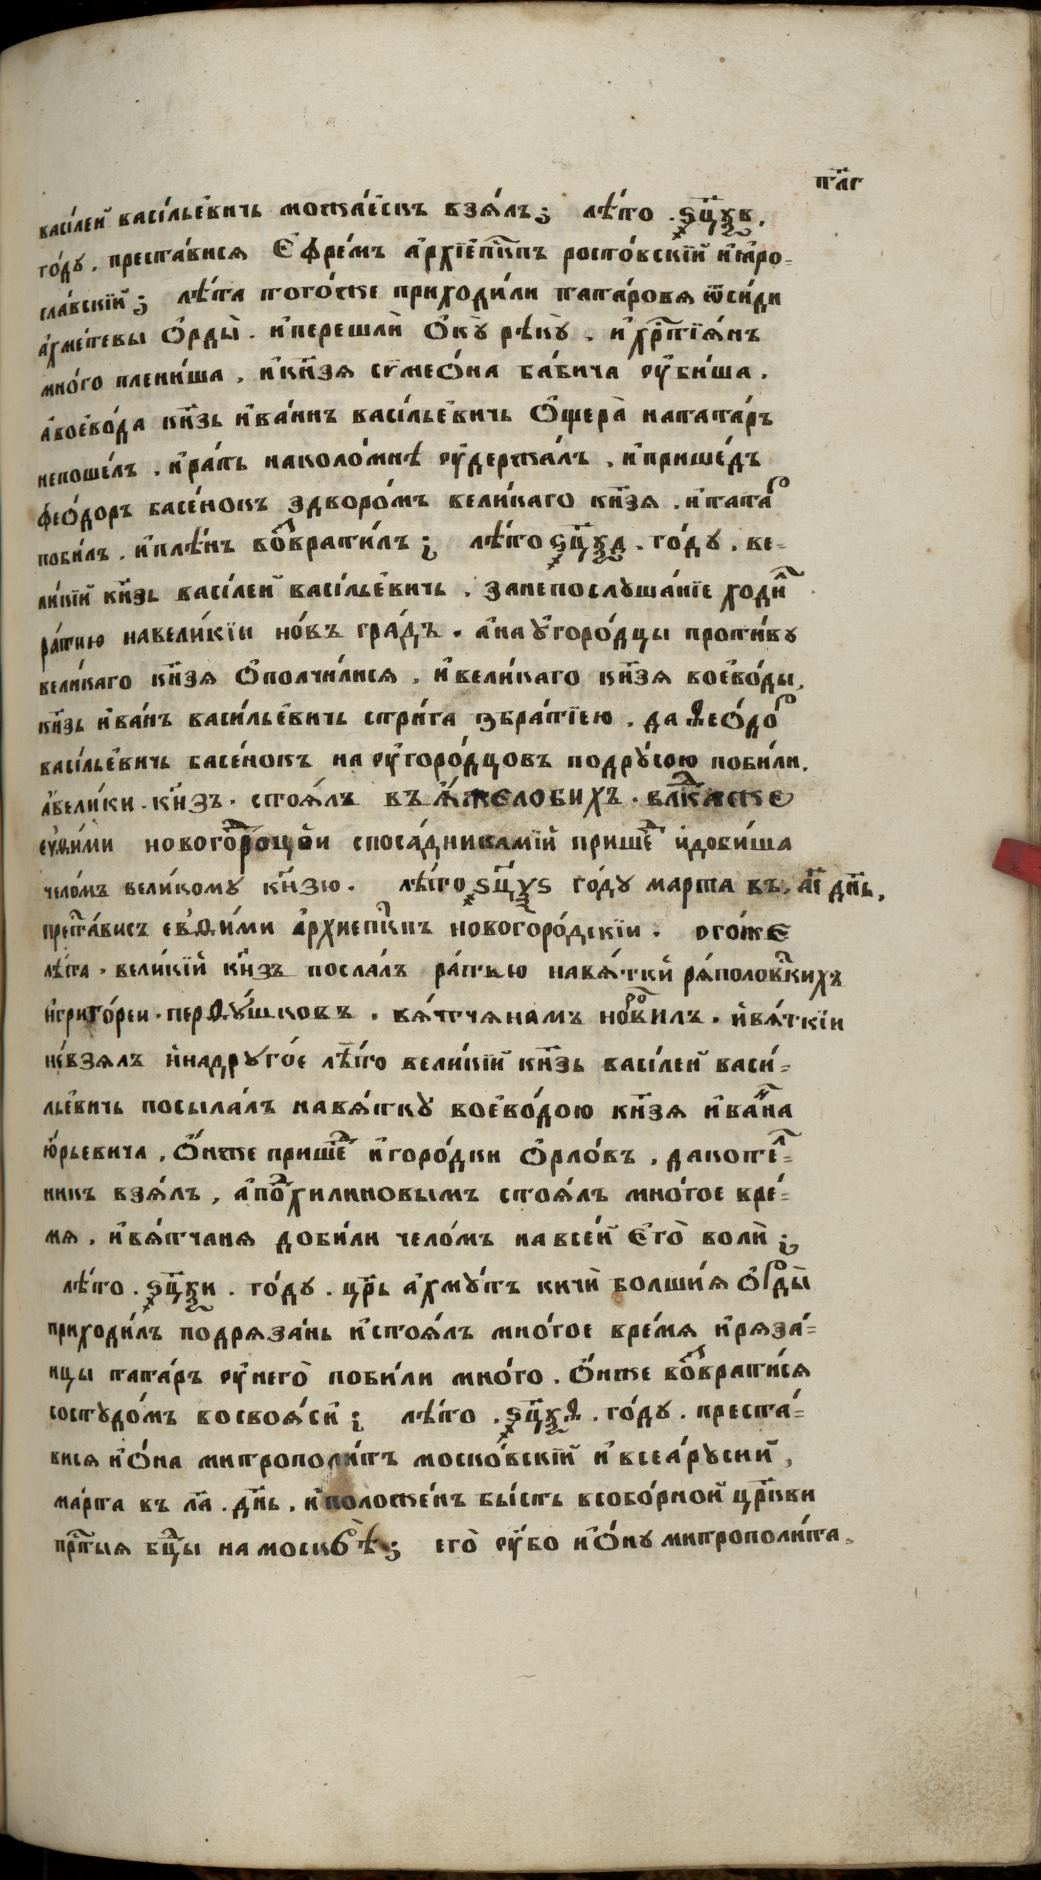 тлг
васі́лей васі́льевичь можа́єскъ взѧ́лъ; лѣ́то .ѕ҃цѯв.
го́ду . преста́висѧ Єфре́мъ а҆рхїєп҃кпъ росто́вскїй и҆ꙗ҆ро-
сла́вскїй; лѣ́та того́же приходи́ли тата́ровѧ ѿси́ди
а҆хме́тевы О҆рды̀ . и҆перешлѝ О҆кꙋ̀ рѣкꙋ̀ . и҆хрⷭ҇тїѧ́нъ
мно́го плени́ша , и҆кн҃зѧ сѵмео́на ба́бича ᲂу҆би́ша .
а҆воево́да кн҃зь и҆ва́ннъ васі́льевичь О҆щера̀ натата́ръ
непоше́лъ . и҆ра́ть наколо́мнѣ ᲂу҆держа́лъ , и҆прише́дъ
фео́доръ басе́нокъ здворо́мъ вели́каго кн҃зѧ . и҆тата́р
поби́лъ . и҆плѣ́нъ во́звратилъ; лѣ́то ѕ҃цѯд . го́ду . ве-
ли́кїй кн҃зь васі́лей васі́льевичь . занепослꙋша́нїе ходи́л
ра́тию навели́кїи но́въ гра́дъ . а҆наꙋгоро́дцы проти́вꙋ
вели́каго кн҃зѧ О҆полчи́лисѧ , и҆вели́каго кн҃зѧ воево́ды,
кн҃зь и҆ва́нъ васи́льевичь стри́га збра́тїею . да ѳео́дор
васі́льевичь басе́нокъ на ᲂу҆горо́дцовъ подрꙋ́сою поби́ли.
а҆вели́ки . кн҃зъ . стоѧ́лъ въ ꙗ҆желобихъ . влⷣкаже
еѵѳи́ми новогоро́цкои спосадникамїи прише́д и҆доби́ша
чело́мъ вели́комꙋ кн҃зю . лѣ́то ѕ҃цѯѕ го́дꙋ марта въ, а҃і дн҃ь.
преста́висъ евѳи́ми а҆рхиеп҃кпъ новогоро́дскїи . ᲂго́же
лѣ́та . вели́кїй кн҃зъ посла́лъ ра́тью навѧ́тки рѧ́половскихъ
и҆григо́реи . перѳꙋ́шковъ . вѧ́тчѧнамъ норовилъ . и҆вѧ́ткїи
не́взѧлъ и҆надрꙋго́е лѣ́то вели́кїй кн҃зь васі́лей васи́-
льевичь посыла́лъ навѧ́ткꙋ воево́дою кн҃зѧ и҆ва́на
ю҆́рьевича , О҆́нже прише́д и҆горо́дки О҆рло́въ . дакоте́л-
никъ взѧ́лъ , а҆по́дхилиновымъ стоѧ́лъ мно́гое вре́-
мѧ . и҆вѧ́тчанѧ доби́ли чело́мъ навсе́й Єго̀ волѝ;
лѣ́то .ѕ҃цѯи . го́дꙋ . цр҃ь а҆хмꙋ́тъ кичѝ болши́ѧ О҆рды̀
приходи́лъ подрѧза́нь и҆стоѧ́лъ мно́гое вре́мѧ и҆рѧза́-
нцы тата́ръ ᲂу҆него̀ поби́ли мно́го . О҆́нже во́звратисѧ
состꙋдо́мъ восвоѧ́си; лѣ́то .ѕ҃цѯѳ . го́дꙋ . преста́-
висѧ и҆О҆́на митрополи́тъ моско́вскїй и҆всеѧ́рꙋсии̂,
ма́рта въ л҃а . дн҃ь . и҆положе́нъ бы́сть всобо́рной цр҃кви
прⷭ҇тыѧ бц҃ы намоскбѣ̀; его̀ ᲂу҆бо и҆О҆́нꙋ митрополи́та.